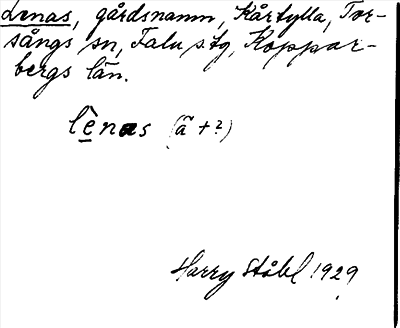 Lenas, gårdsnamn, Kårtylla, Tor-
sångs sn, Falu s. tg, Koppar-
bergs län.
lènas (ã + ?)
Harry Ståhl 1929